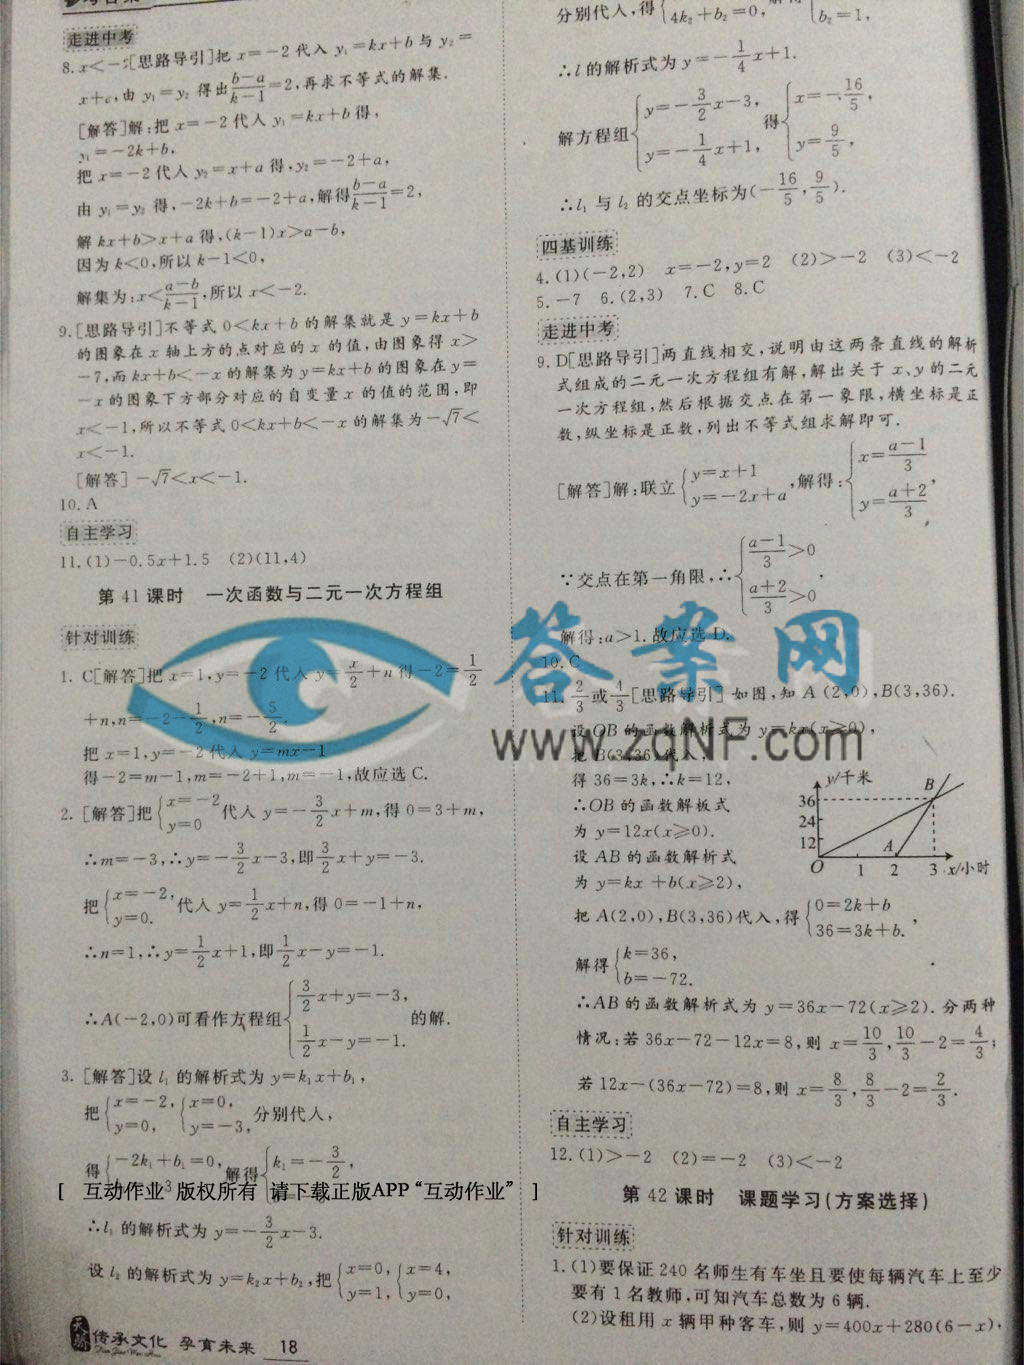 走进中考
8.x<-2[思路导引]把 x=-2 代入 y₁=kx+b 与 y₂=
x+c,由 y₁=y₂ 得出(b-a)/(k-1)=2,再求不等式的解集.
[解答]解:把 x=-2 代人 y₁=kx+b 得,
y₁=-2k+b,
把 x=-2 代人 y₂=x+a 得,y₂=-2+a,
由 y₁=y₂ 得,-2k+b=-2+a,解得(b-a)/(k-1)=2,
解 kx+b>x+a 得,(k-1)x>a-b,
因为 k<0,所以 k-1<0,
解集为:x<(a-b)/(k-1),所以 x<-2.
9.[思路导引]不等式 0<kx+b 的解集就是 y=kx+b
的图象在 x 轴上方的点对应的 x 的值,由图象得 x>
-7,而 kx+b<-x 的解集为 y=kx+b 的图象在 y=
-x 的图象下方部分对应的自变量 x 的值的范围,即
x<-1,所以不等式 0<kx+b<-x 的解集为-√7<
x<-1.
[解答] -√7<x<-1.
10.A
自主学习
11.(1)-0.5x+1.5 (2)(11,4)
第 41 课时 一次函数与二元一次方程组
针对训练
1. C[解答]把 x=1,y=-2 代人 y=x/2+n 得-2=1/2
+n,n=-2-1/2,n=-5/2.
把 x=1,y=-2 代人 y=mx-1
得-2=m-1,m=-2+1,m=-1,故应选 C.
2. [解答]把{x=-2 y=0 代人 y=-3/2x+m,得 0=3+m,
∴m=-3,∴y=-3/2x-3,即3/2x+y=-3.
把{x=-2, y=0. 代人 y=1/2x+n,得 0=-1+n,
∴n=1,∴y=1/2x+1,即1/2x-y=-1.
∴A(-2,0)可看作方程组{3/2x+y=-3, 1/2x-y=-1. 的解.
3. [解答]设 l₁ 的解析式为 y=k₁x+b₁,
把{x=-2, y=0, {x=0, y=-3, 分别代人,
得{-2k₁+b₁=0, 解得{k₁=-3/2,
[ 互动作业 版权所有 请下载正版APP“互动作业” ]
∴l₁ 的解析式为 y=-3/2x-3.
设 l₂ 的解析式为 y=k₂x+b₂,把{x=0, y=1, {x=4, y=0,
传承文化 孕育未来 18
分别代人,得{4k₂+b₂=0, {b₂=1,
∴l 的解析式为 y=-1/4x+1.
解方程组{y=-3/2x-3, y=-1/4x+1, 得{x=-16/5, y=9/5,
∴l₁ 与 l₂ 的交点坐标为(-16/5,9/5).
四基训练
4.(1)(-2,2) x=-2,y=2 (2)>-2 (3)<-2
5.-7 6.(2,3) 7.C 8.C
走进中考
9. D[思路导引]两直线相交,说明由这两条直线的解析
式组成的二元一次方程组有解,解出关于 x、y 的二元
一次方程组,然后根据交点在第一象限,横坐标是正
数,纵坐标是正数,列出不等式组求解即可.
[解答]解:联立{y=x+1 y=-2x+a,解得:{x=(a-1)/3 y=(a+2)/3,
∵交点在第一角限,∴{(a-1)/3>0 (a+2)/3>0,
解得:a>1.故应选 D.
10.C
11. 2/3或4/3[思路导引] 如图,知 A (2,0),B(3,36).
设 OB 的函数解析式为 y=kx(x≥0),
把 B(3,36)代人,
得 36=3k,∴k=12,
∴OB 的函数解板式
为 y=12x(x≥0).
设 AB 的函数解析式
为 y=kx +b(x≥2),
y/千米
36
24
12
O 1 2 3 x/小时
A
B
把 A(2,0),B(3,36)代入,得{0=2k+b 36=3k+b.,
解得{k=36, b=-72.
∴AB 的函数解析式为 y=36x-72(x≥2). 分两种
情况:若 36x-72-12x=8,则 x=10/3,10/3-2=4/3;
若 12x-(36x-72)=8,则 x=8/3,8/3-2=2/3.
自主学习
12.(1)>-2 (2)=-2 (3)<-2
第 42 课时 课题学习(方案选择)
针对训练
1.(1)要保证 240 名师生有车坐且要使每辆汽车上至少
要有 1 名教师,可知汽车总数为 6 辆.
(2)设租用 x 辆甲种客车,则 y=400x+280(6-x),
答案网
www.zqNF.com